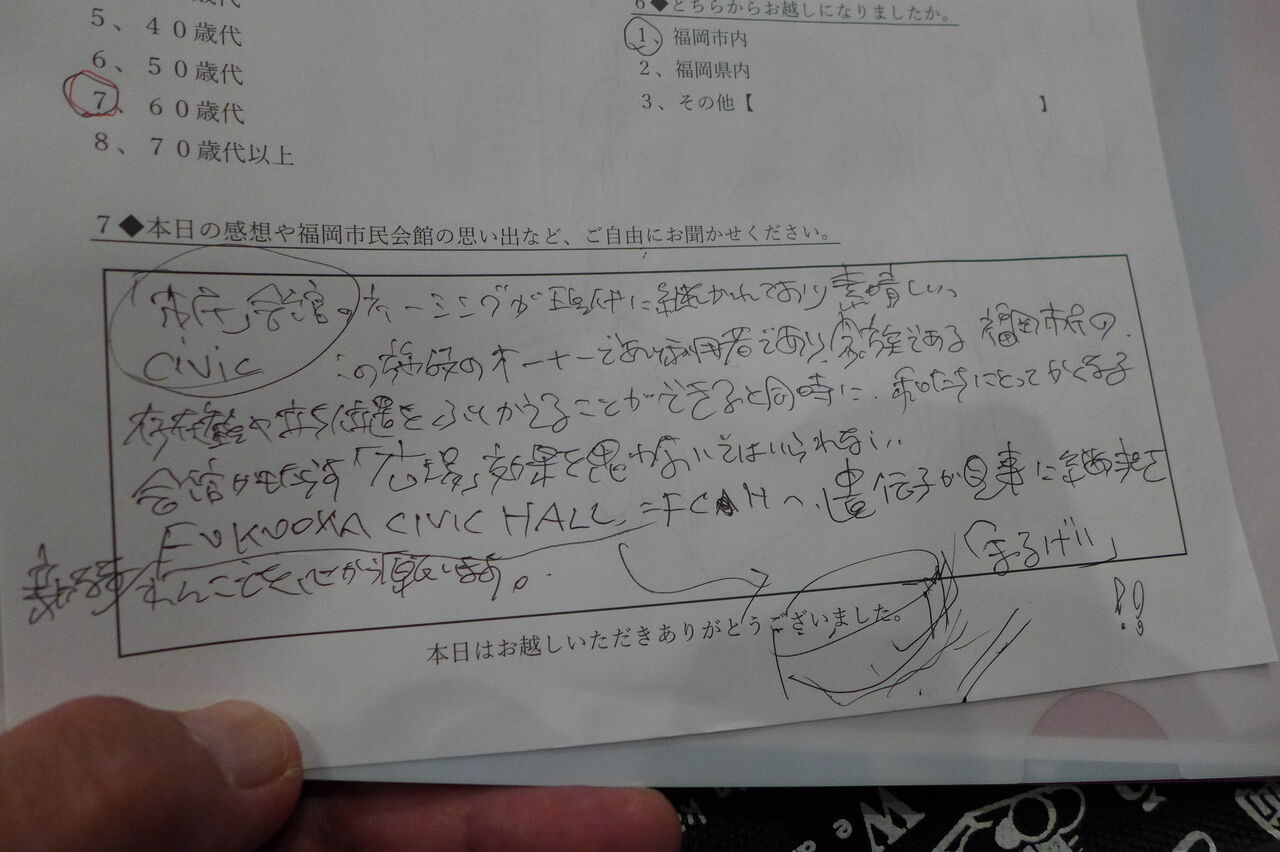 5、40歳代
6、50歳代
7、60歳代
8、70歳代以上
6◆どちらからお越しになりましたか。
1、福岡市内
2、福岡県内
3、その他【 】
7◆本日の感想や福岡市民会館の思い出など、ご自由にお聞かせください。
「市民」会館のネーミングが現代に継がれており素晴しい
CIVIC この施設のオーナーであり利用者であり家族である 福岡市民の
存在や立ち位置をふりかえることができると同時に、私たちにとってかくなる
会館がもたらす「広場」効果を思わないではいられない
FUKUOKA CIVIC HALL = FCHへ、遺伝子が見事に継承さ
れんことを心から願います。
「まるげり」
!!
本日はお越しいただきありがとうございました。
We